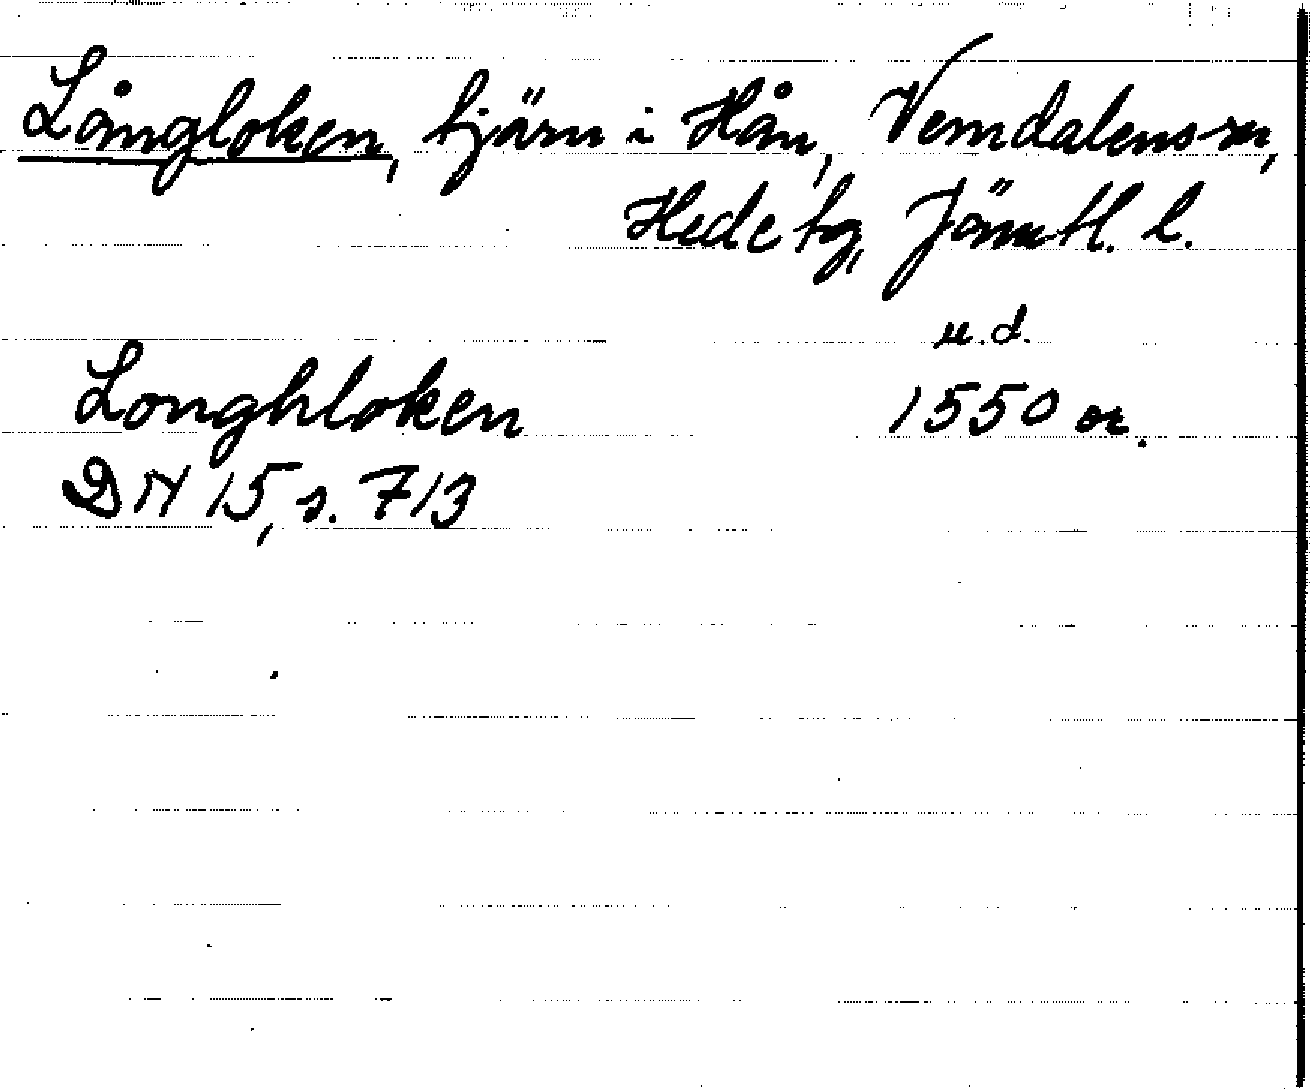 Långloken, tjärn i Hån, Vemdalens sn,
Hede tg, Jämtl. l.
u.d.
Longhloken 1550 or.
DN 15, s. 713